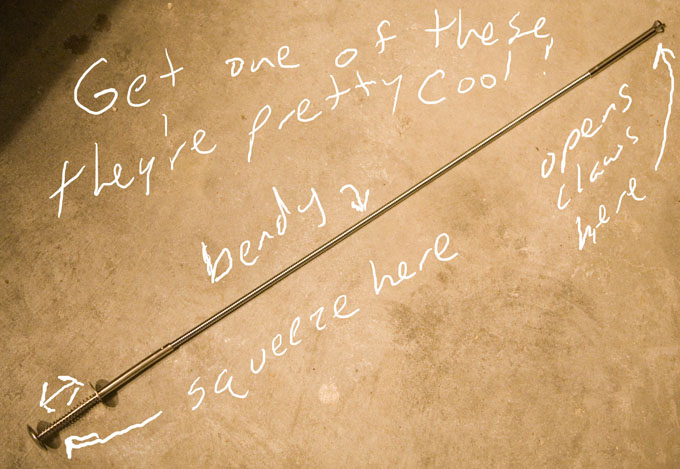 Get one of these,
they're pretty cool!
opens
claws
here
bendy
squeeze here